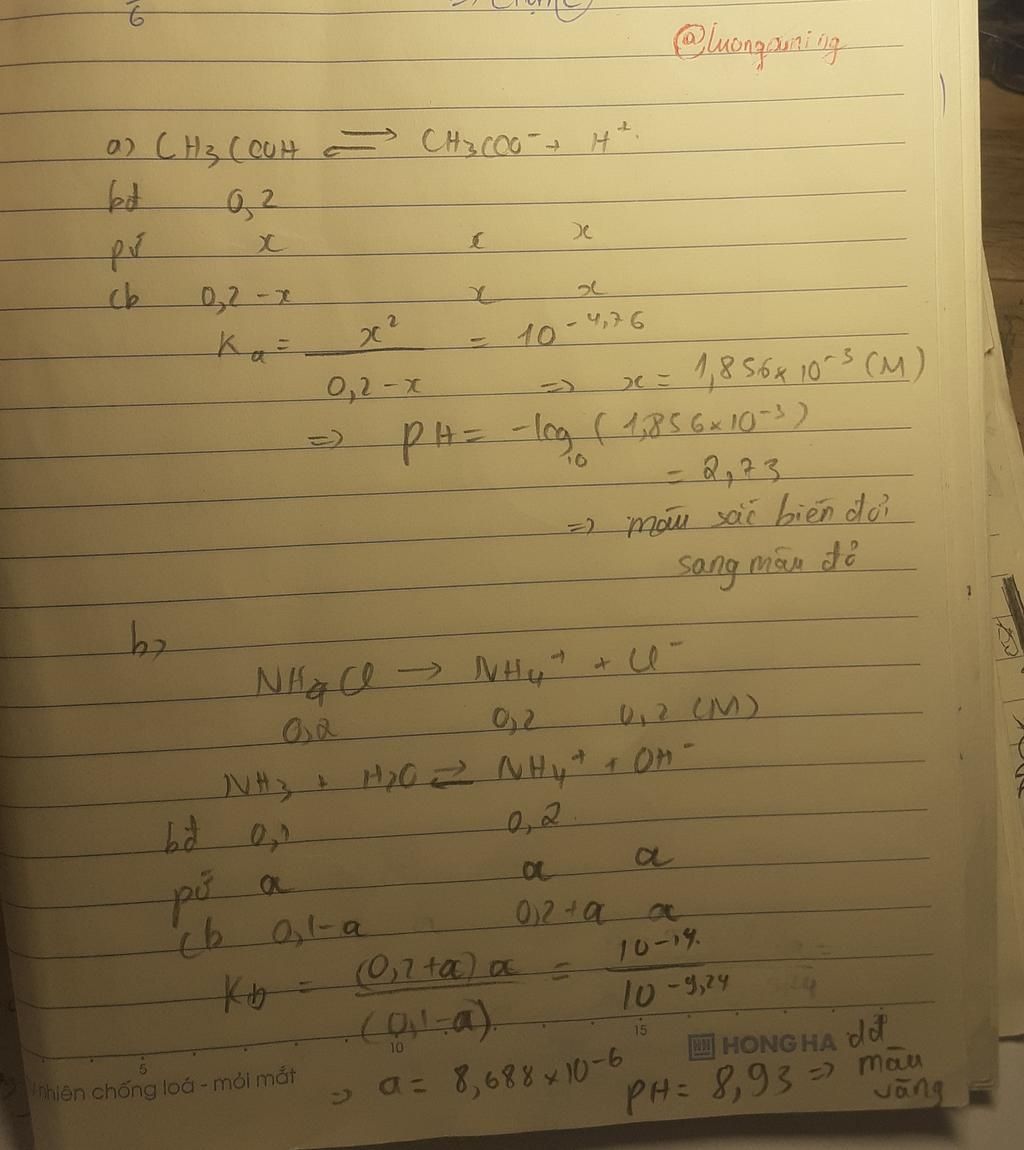 6
@luongxuning
a) CH3COOH ⇌ CH3COO⁻ + H⁺.
bđ 0,2
pứ x x x
cb 0,2-x x x
Ka = x²/(0,2-x) = 10^-4,76
=> x = 1,856×10^-3 (M)
=> pH = -log₁₀(1,856×10^-3)
= 2,73
=> màu sắc biến đổi
sang màu đỏ
b)
NH4Cl → NH4⁺ + Cl⁻
0,2 0,2 0,2 (M)
NH3 + H2O ⇌ NH4⁺ + OH⁻
bđ 0,1 0,2
pứ a a a
cb 0,1-a 0,2+a a
Kb = (0,2+a)a/(0,1-a) = 10^-14/10^-9,24
5 10 15
HONG HA
nhiên chống loá - mỏi mắt
=> a = 8,688×10^-6
pH = 8,93 => dd
màu
vàng